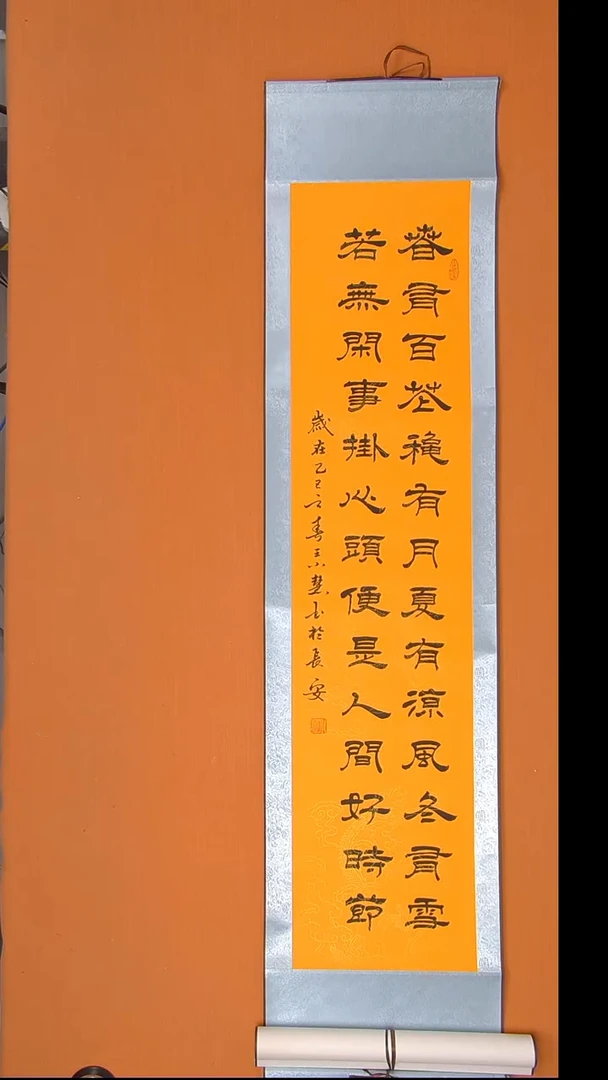 春有百花穐有月夏有涼風冬有雪
若無閑事掛心頭便是人間好時節
歲在乙巳之春王小慧書於長安